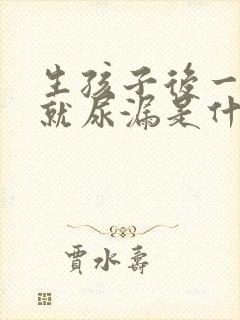 生孩子後一
就尿漏是什
賈水壽